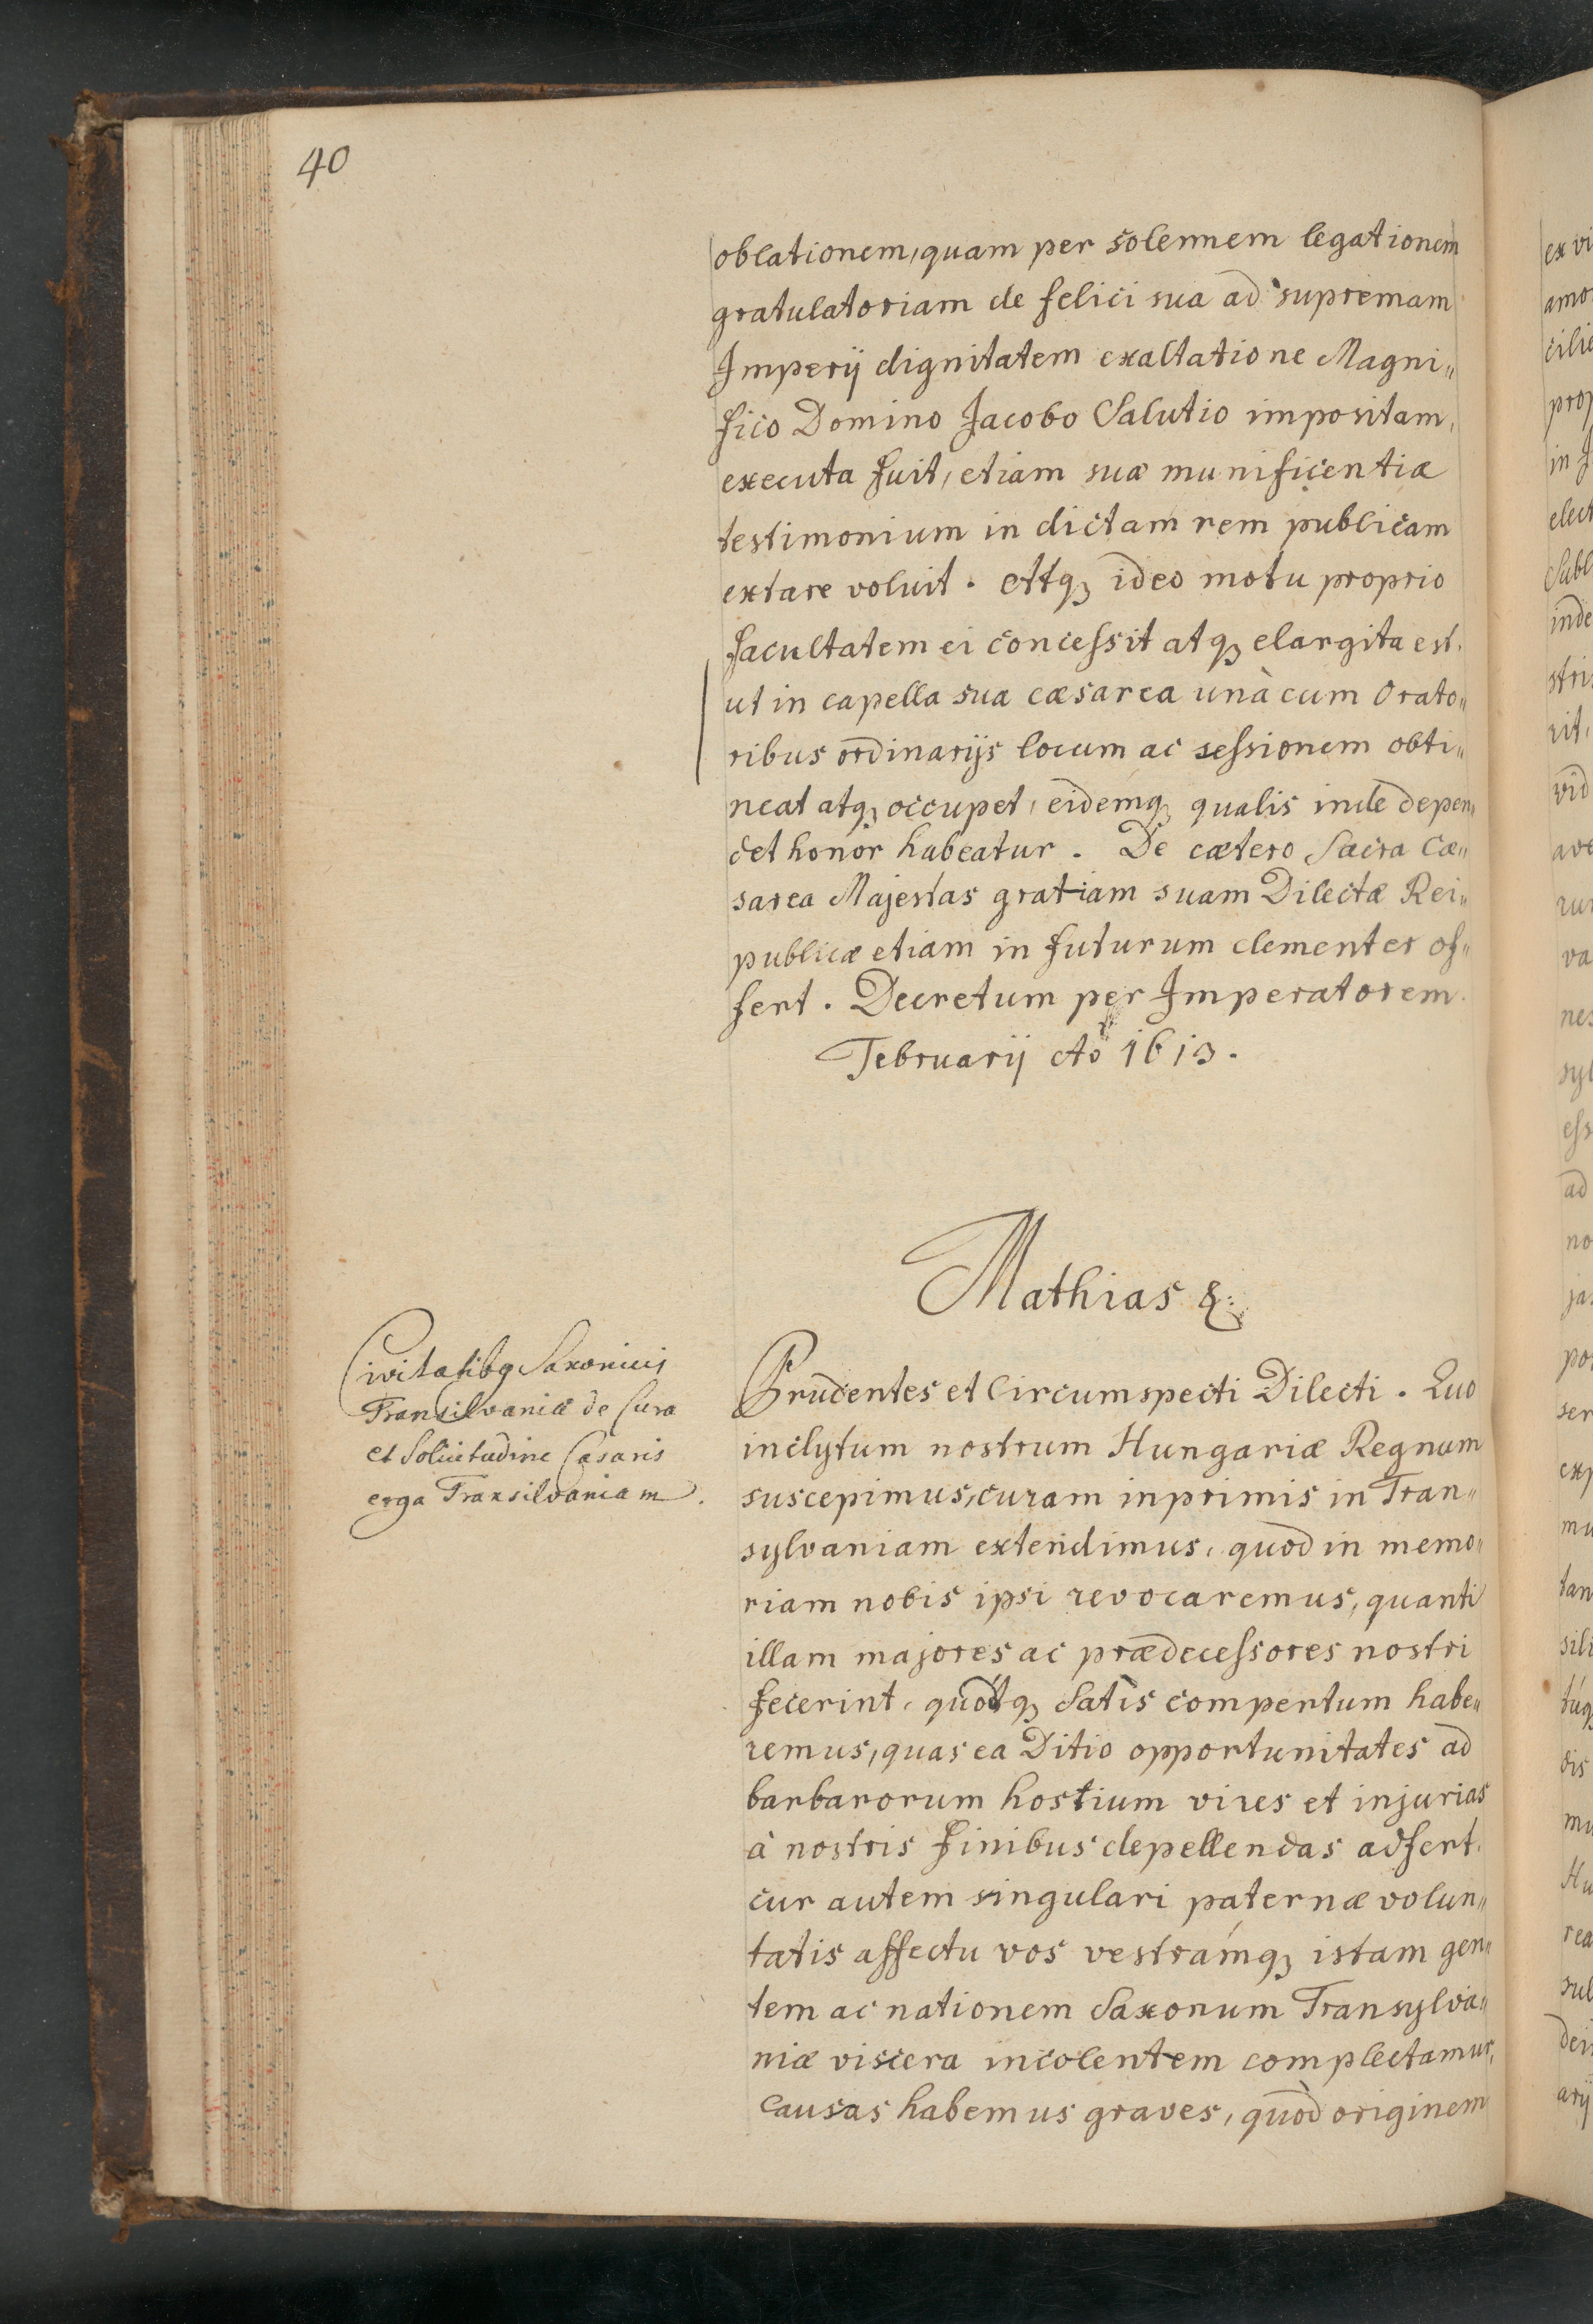 40
oblationem, quam per solennem legationem
gratulatoriam de felici sua ad supremam
Imperij dignitatem exaltatione Magni„
fico Domino Jacobo Salutio impositam,
executa fuit, etiam suæ munificentiæ
testimonium in dictam rem publicam
extare voluit. Atqꝫ ideo motu proprio
facultatem ei concessit atqꝫ elargita est.
ut in capella sua cæsarea unà cum Orato„
ribus ordinarijs locum ac sessionem obti„
neat atqꝫ occupet, eidemqꝫ qualis inde depen„
det honor habeatur. De cætero Sacra Cæ„
sarea Majestas gratiam suam Dilectæ Rei„
publicæ etiam in futurum clementer of„
fert. Decretum per Imperatorem.
Februarij Ao 1613.
Mathias &:
Civitatibq Saxonicis
Transilvaniæ de Cura
et Solicitudine Cæsaris
erga Transilvaniam.
Prudentes et Circumspecti Dilecti. Quo
inclytum nostrum Hungariæ Regnum
suscepimus, curam inprimis in Tran„
sylvaniam extendimus, quod in memo„
riam nobis ipsi revocaremus, quanti
illam majores ac prædecessores nostri
fecerint, quodqꝫ satis compertum habe„
remus, quas ea Ditio opportunitates ad
barbarorum hostium vires et injurias
à nostris finibus depellendas adfert.
cur autem singulari paternæ volun„
tatis affectu vos vestramqꝫ istam gen„
tem ac nationem Saxonum Transylva„
niæ viscera incolentem complectamur,
causas habemus graves, quòd originem